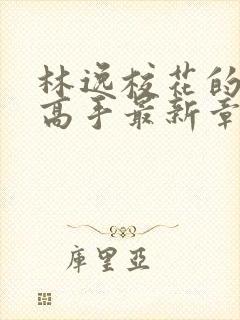 林逸校花的
高手最新章
库里亞